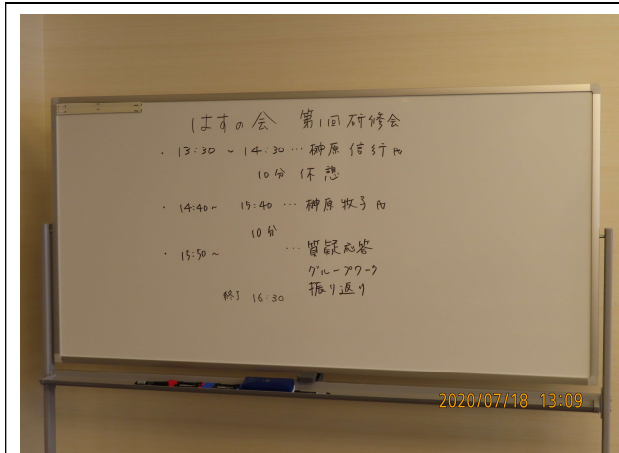 はすの会 第1回研修会
・13:30 ~ 14:30 … 榊原信行氏
10分 休憩
・14:40~ 15:40 … 榊原牧子氏
10分
・15:50~ … 質疑応答
グループワーク
振り返り
終了 16:30
2020/07/18 13:09